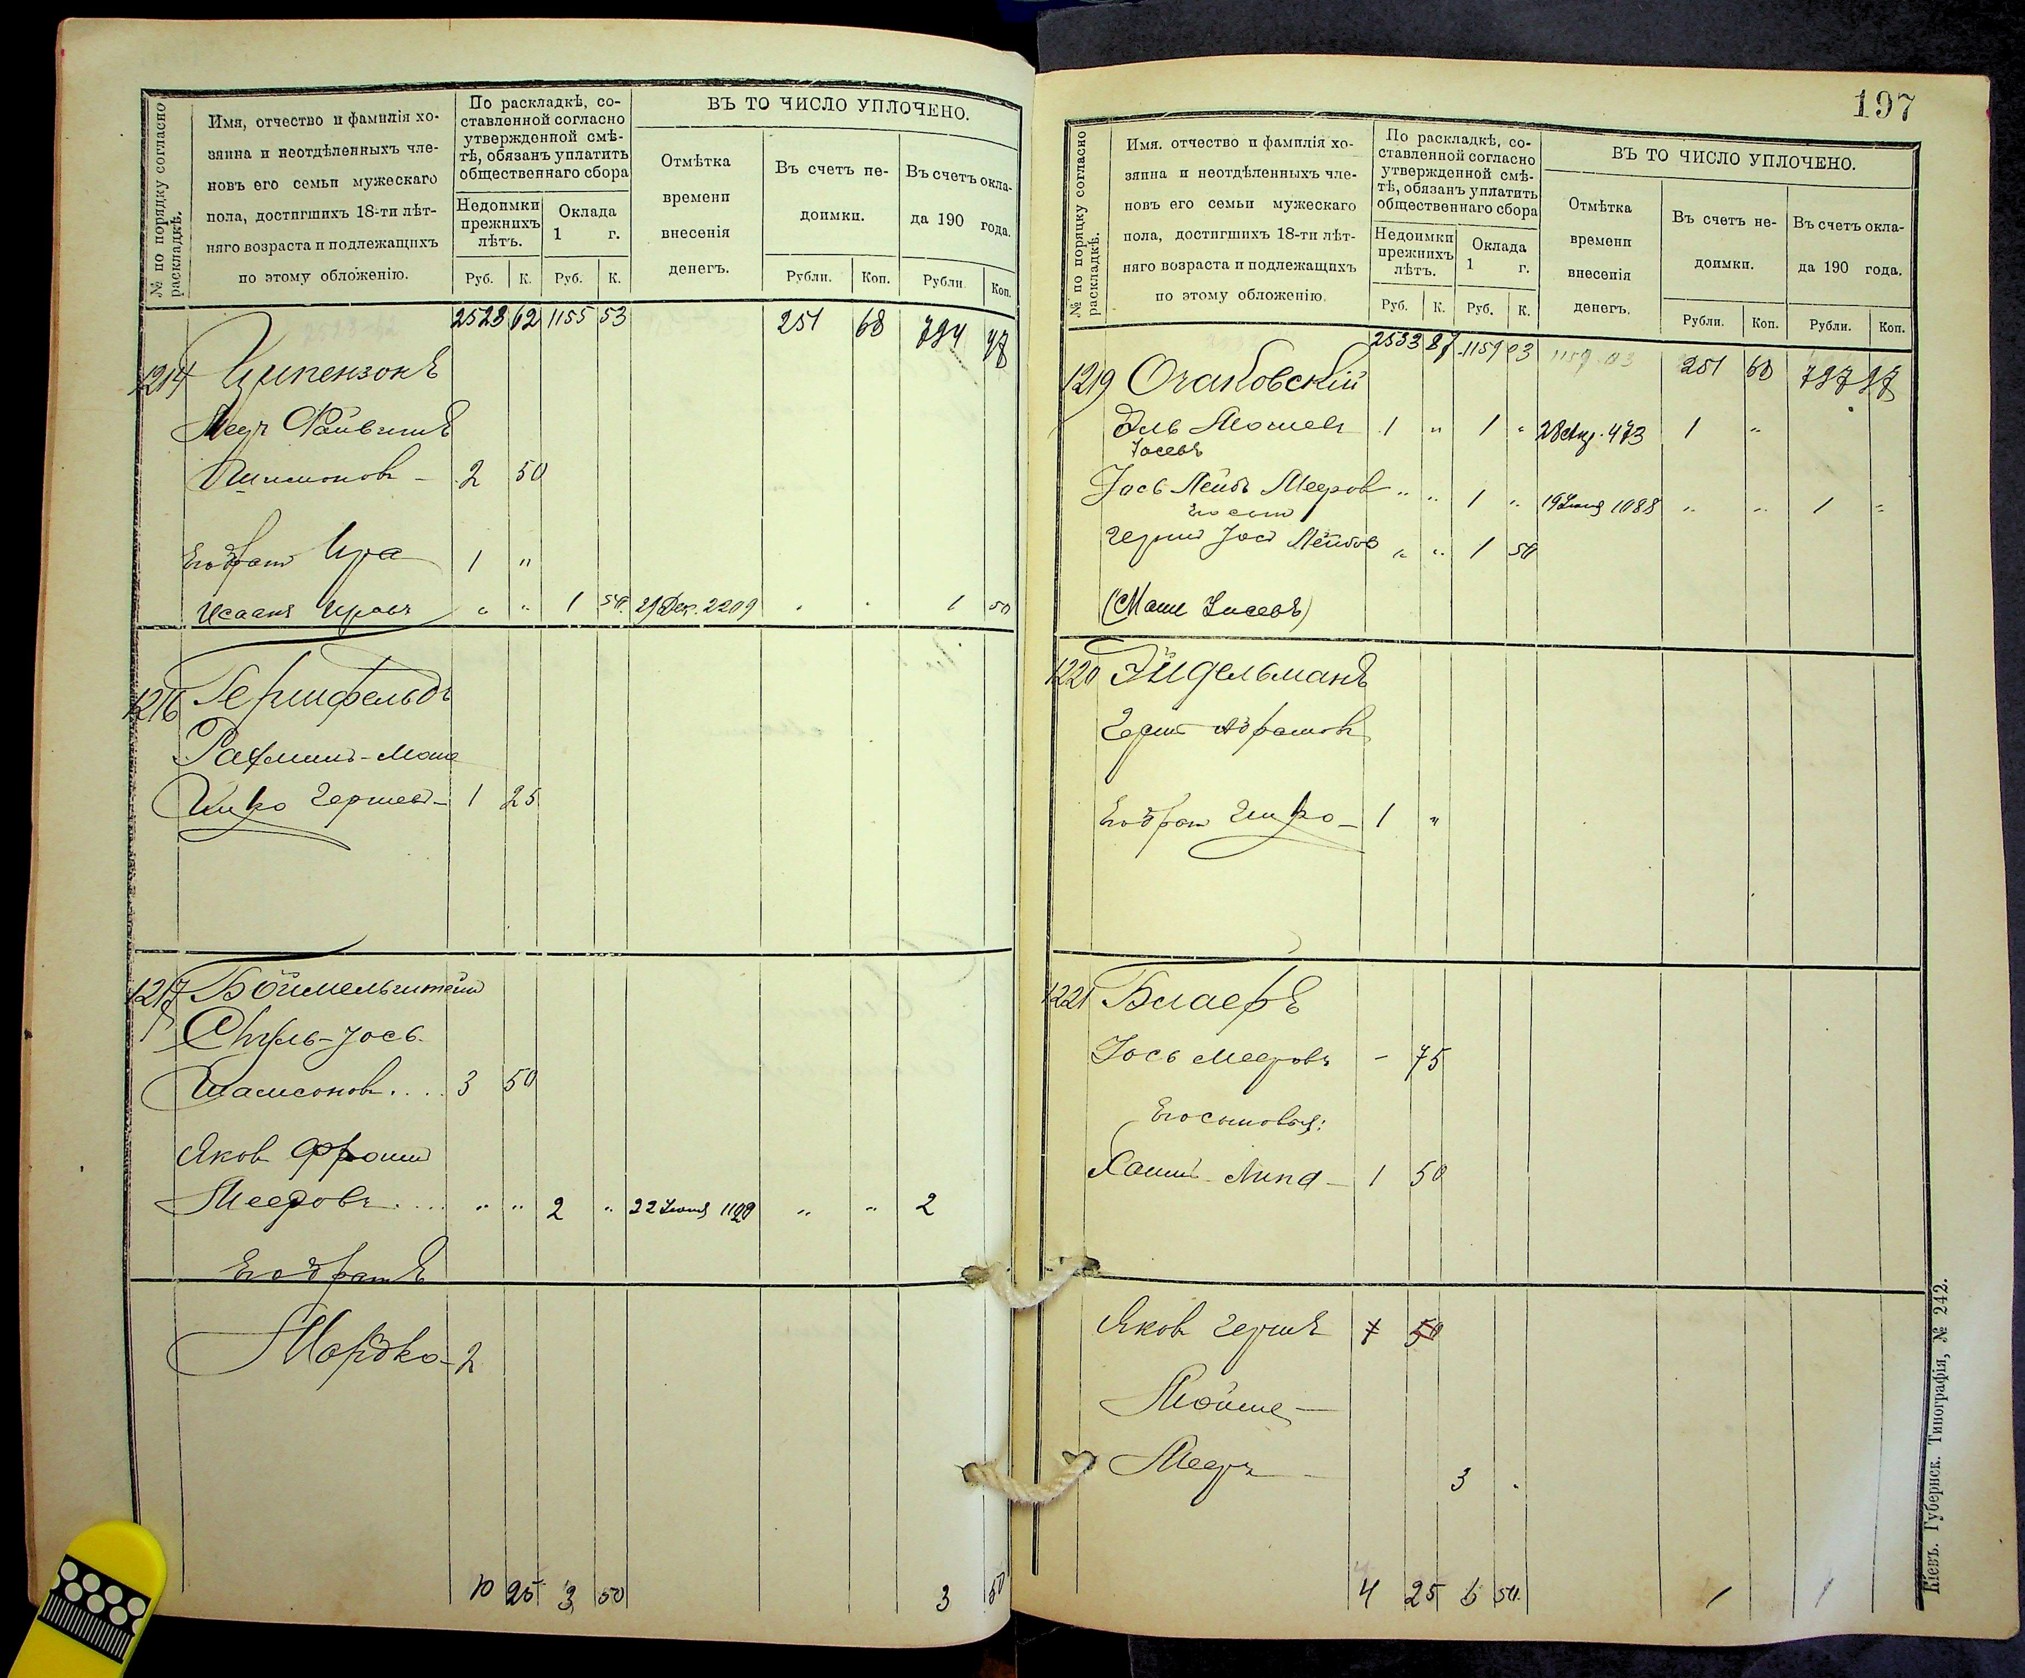 № по порядку согласно раскладкѣ.
Имя, отчество и фамилія хо-
зяина и неотдѣленныхъ чле-
новъ его семьи мужескаго
пола, достигшихъ 18-ти лѣт-
няго возраста и подлежащихъ
по этому обложенію.
По раскладкѣ, со-
ставленной согласно
утвержденной смѣ-
тѣ, обязанъ уплатить
общественнаго сбора
Недоимки
прежнихъ
лѣтъ.
Оклада
1 г.
Руб. К. Руб. К.
ВЪ ТО ЧИСЛО УПЛОЧЕНО.
Отмѣтка
времени
внесенія
денегъ.
Въ счетъ не-
доимки.
Въ счетъ окла-
да 190 года.
Рубли. Коп. Рубли. Коп.
2523 62 1155 53 251 68 794 47
1214 Ципензонъ
Меер Файвишъ
Шимонов - 2 50
Его брат Ира 1 "
Исаакъ Ицков " " 1 50 29 Дек. 2209 " " 1 50
1216 Гершфельдъ
Рахмиль-Моше
Ицко Гершев - 1 25
1217 Боймельштейн
Сруль-Іось
Шамсонов .... 3 50
Яков Фроим
Мееровъ .... " " 2 " 22 Іюня 1129 " " 2
Его братъ
Мордко - 2
10 25 3 50 3 50
197
№ по порядку согласно раскладкѣ.
Имя. отчество и фамилія хо-
зяина и неотдѣленныхъ чле-
новъ его семьи мужескаго
пола, достигшихъ 18-ти лѣт-
няго возраста и подлежащихъ
по этому обложенію.
По раскладкѣ, со-
ставленной согласно
утвержденной смѣ-
тѣ, обязанъ уплатить
общественнаго сбора
Недоимки
прежнихъ
лѣтъ.
Оклада
1 г.
Руб. К. Руб. К.
ВЪ ТО ЧИСЛО УПЛОЧЕНО.
Отмѣтка
времени
внесенія
денегъ.
Въ счетъ не-
доимки.
Въ счетъ окла-
да 190 года.
Рубли. Коп. Рубли. Коп.
2533 87 1159 03 1159 03 251 68 797 97
1219 Очаковскій
Эль Мошев 1 " 1 " 28 Апр. 473 1 "
Іосевъ
Іось Лейбъ Мееров " " 1 " 19 Іюня 1088 " " 1 "
Его сын
Герш Іось Лейбов " " 1 50
(Моше Іосевъ)
1220 Эйдельманъ
Герш Абрамов
Его брат Ицко - 1 "
1221 Блаеръ
Іось Мееровъ - 75
Его сыновья:
Хаим - Липа - 1 50
Яков Гершъ 1 50
Мойше -
Меер - 3 "
4 25 6 50 1 1
Кіевъ. Губернск. Типографія, № 242.